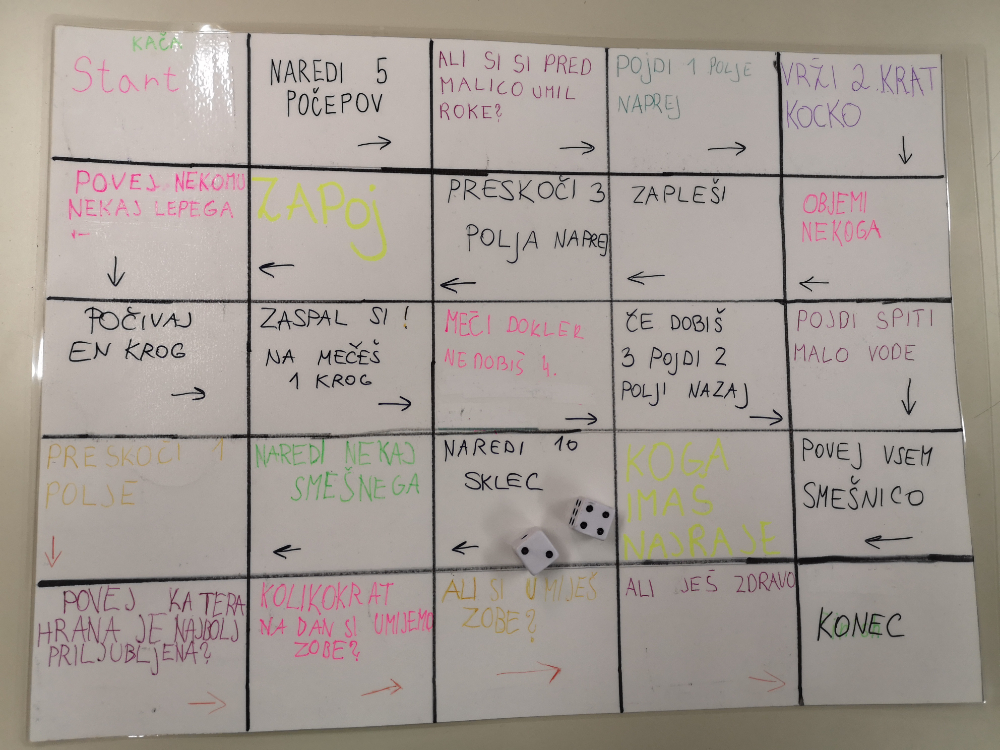 KAČA
Start
NAREDI 5
POČEPOV
ALI SI SI PRED
MALICO UMIL
ROKE?
POJDI 1 POLJE
NAPREJ
VRŽI 2.KRAT
KOCKO
POVEJ NEKOMU
NEKAJ LEPEGA
ZAPOJ
PRESKOČI 3
POLJA NAPREJ
ZAPLEŠI
OBJEMI
NEKOGA
POČIVAJ
EN KROG
ZASPAL SI!
NA MEČEŠ
1 KROG
MEČI DOKLER
NEDOBIŠ 4.
ČE DOBIŠ
3 POJDI 2
POLJI NAZAJ
POJDI SPITI
MALO VODE
PRESKOČI 1
POLJE
NAREDI NEKAJ
SMEŠNEGA
NAREDI 10
SKLEC
KOGA
IMAŠ
NAJRAJE
POVEJ VSEM
SMEŠNICO
POVEJ KATERA
HRANA JE NAJBOLJ
PRILJUBLJENA?
KOLIKOKRAT
NA DAN SI UMIJEMO
ZOBE?
ALI SI UMIJEŠ
ZOBE?
ALI JEŠ ZDRAVO
KONEC